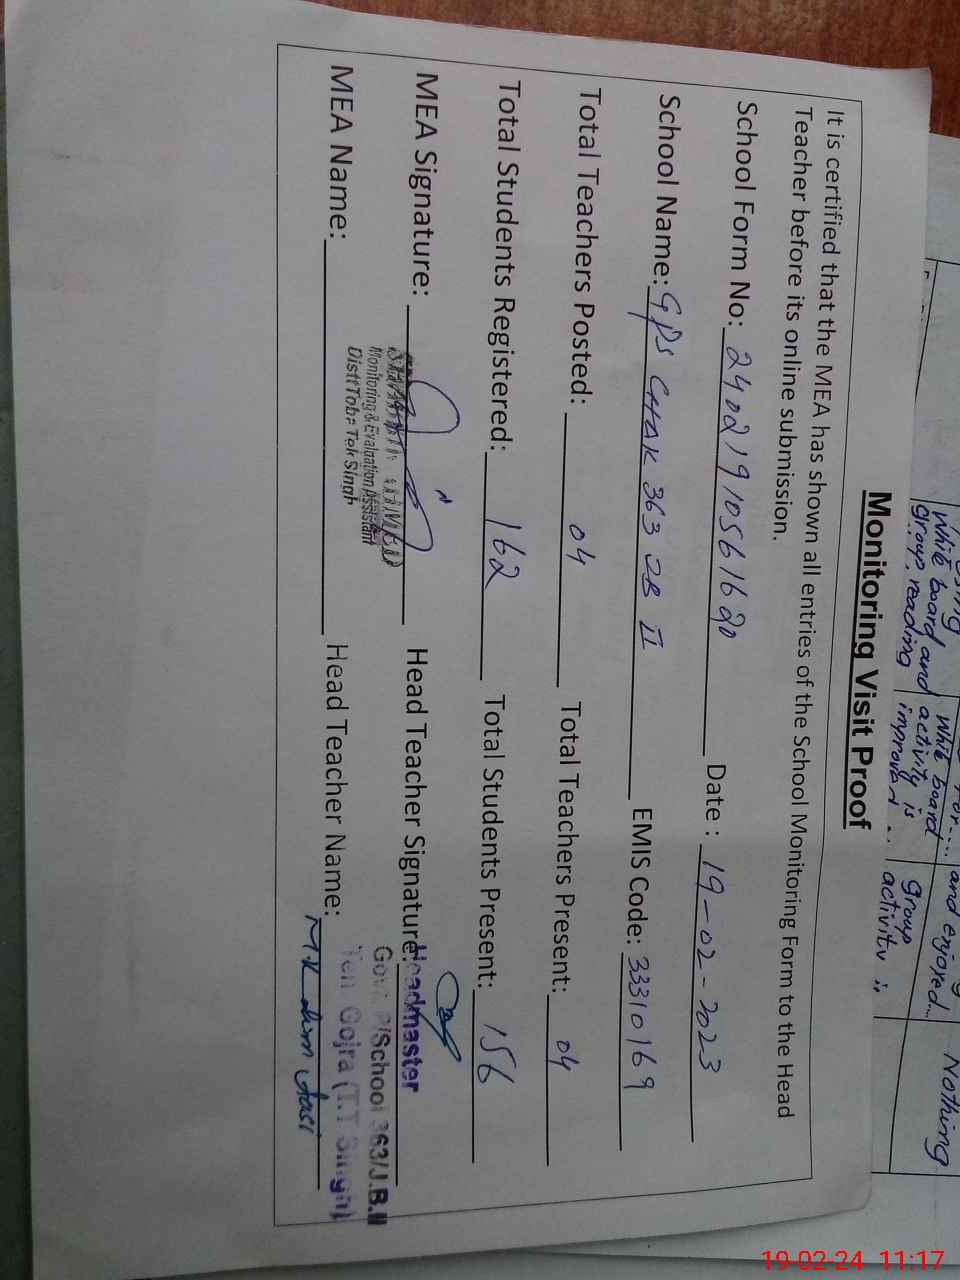 Monitoring Visit Proof
It is certified that the MEA has shown all entries of the School Monitoring Form to the Head
Teacher before its online submission.
School Form No: 24021910561690 Date : 19-02-2023
School Name: GPS CHAK 363 JB II EMIS Code: 33310169
Total Teachers Posted: 04 Total Teachers Present: 04
Total Students Registered: 162 Total Students Present: 156
MEA Signature: Head Teacher Signature:
Monitoring & Evaluation Assistant
Distt Toba Tek Singh
Headmaster
Govt. P/School 363/J.B.II
Teh. Gojra (T.T Singh)
MEA Name: Head Teacher Name:
White board and
group reading
White board
activity is
improved
and enjoyed...
group
activity
Nothing
19-02-24 11:17